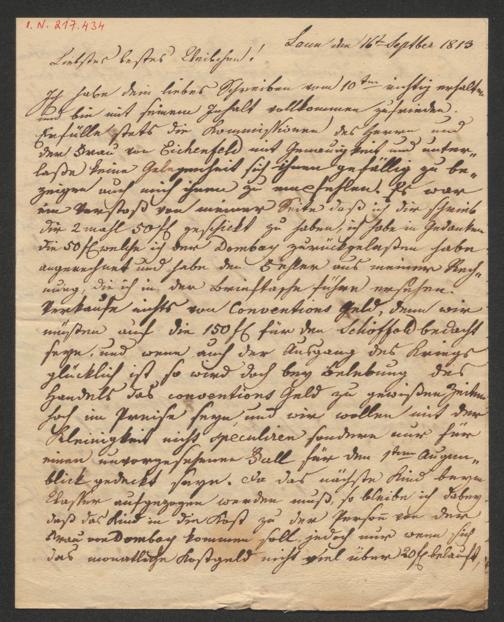 I. N. 217.434
Laun den 16t Septber 1813
Liebstes bestes Weibchen!
Ich habe dein liebes Schreiben vom 10ten richtig erhalten
und bin mit seinem Inhalt vollkommen zufrieden.
Erfülle stets die Kommissionen des Herrn und
der Frau von Eichenfeld mit Genauigkeit und unter-
lasse keine Gelegenheit sich ihnen gefällig zu be-
zeigen auch mich ihnen zu empfehlen. Es war
ein Verstoß von meiner Seite daß ich dir schrieb
dir 2 mahl 50f geschickt zu haben, ich habe in Gedanken
die 50f welche ich der Dombay zurückgelassen habe
angerechnet und habe den Fehler aus meiner Rech-
nung, die ich in der Brieftasche führe ersehen.
Verkaufe nichts von Conventions Geld, denn wir
müssen auf die 150f für den Schiffold bedacht
seyn, und wenn auch der Ausgang des Kriegs
glücklich ist, so wird doch bey Belebung des
Handels das conventions Geld zu gewissen Zeiten
hoch im Preise seyn, und wir wollen mit der
Kleinigkeit nicht speculiren sondern nur für
einen unvorgesehenen Fall für den 1sten Augen-
blick gedeckt seyn. Da das nächste Kind beym
Wasser aufgezogen werden muß, so bleibe ich dabey
daß das Kind in die Kost zu der Person von der
Frau von Dombay kommen soll, jedoch nur wenn sich
das monatliche Kostgeld nicht viel über 20f belauft,